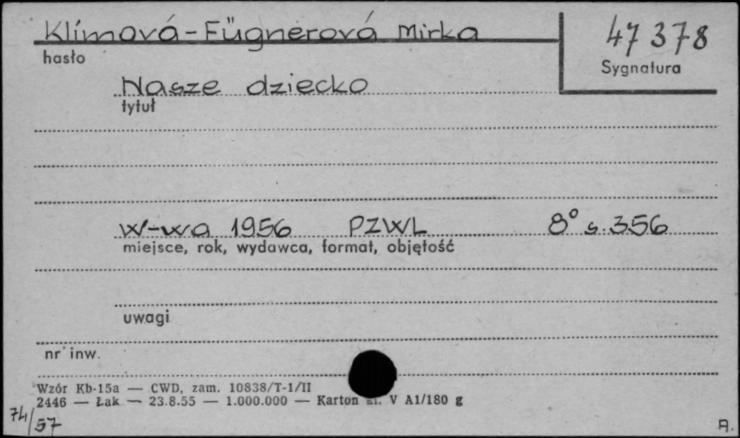 Klímová-Fügnerová Mirka
47 378
hasło
Sygnatura
Nasze dziecko
tytuł
W-wa 1956 PZWL 8° s. 356
miejsce, rok, wydawca, format, objętość
uwagi
nr inw.
Wzór Kb-15a — CWD, zam. 10838/T-1/II
2446 — Łak — 23.8.55 — 1.000.000 — Karton kl. V A1/180 g
74/57
A.